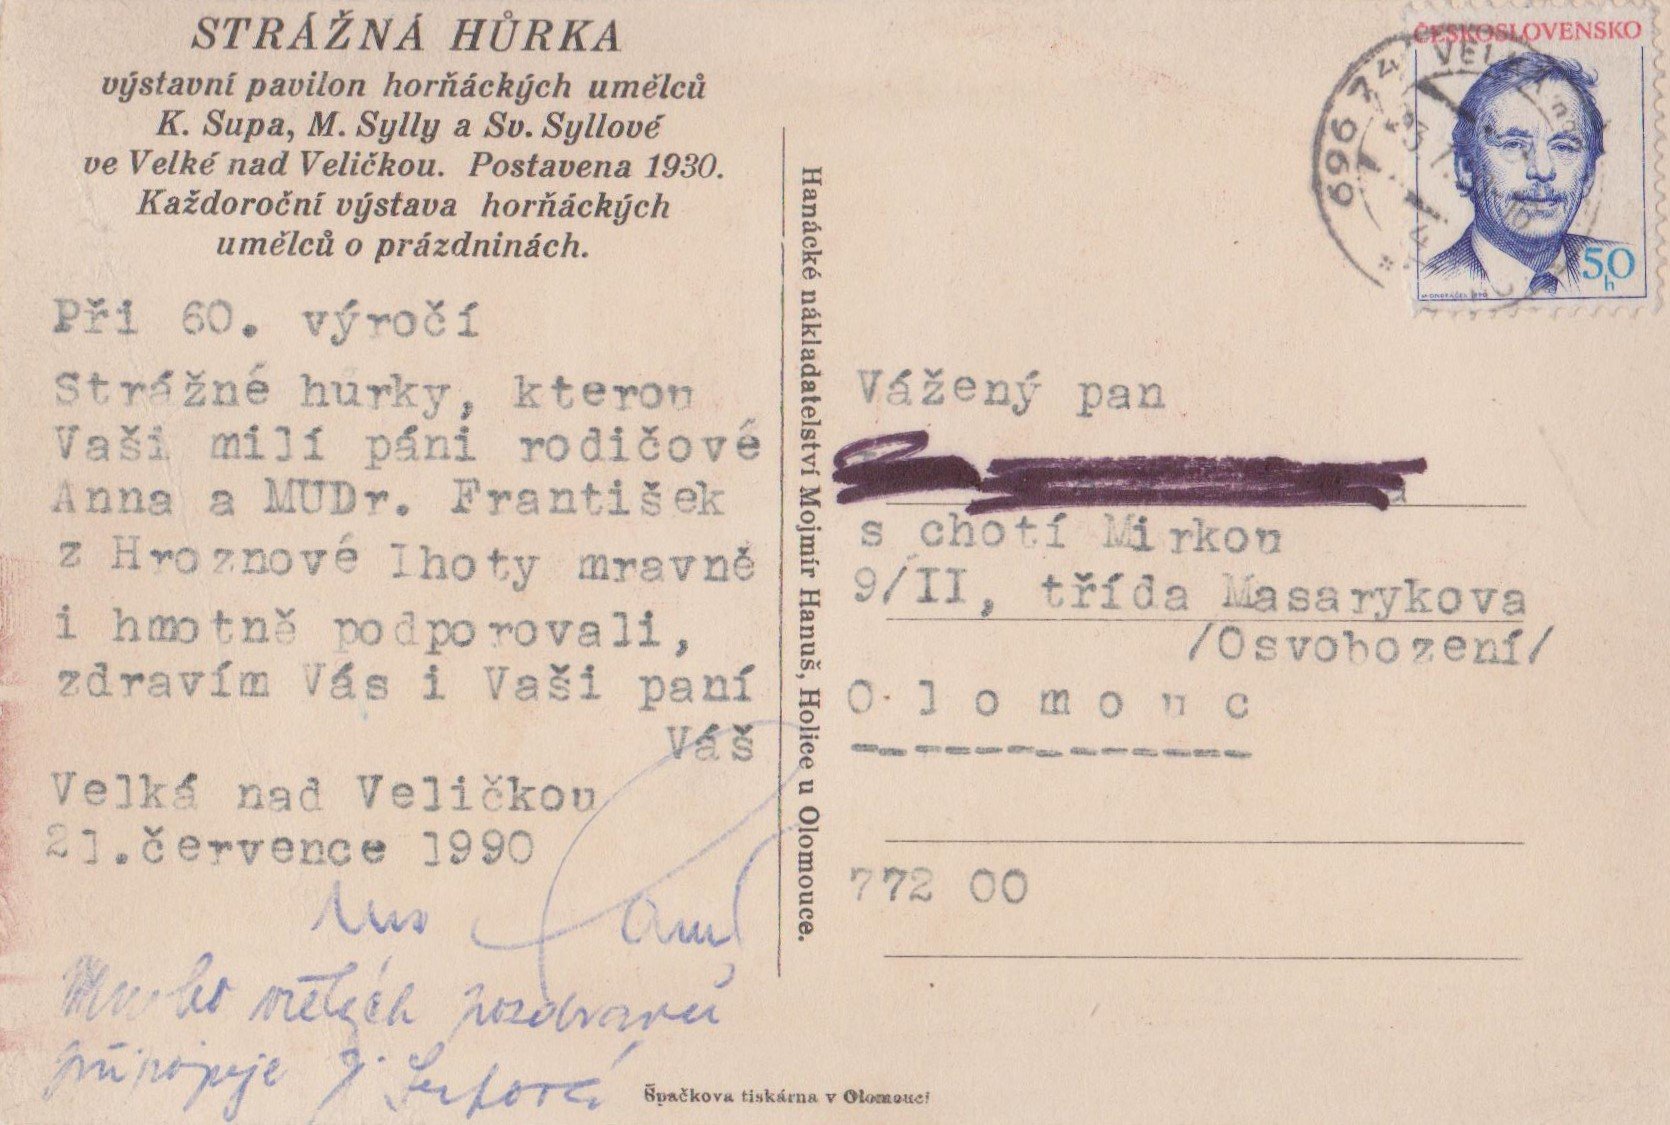 STRÁŽNÁ HŮRKA
výstavní pavilon horňáckých umělců
K. Supa, M. Sylly a Sv. Syllové
ve Velké nad Veličkou. Postavena 1930.
Každoroční výstava horňáckých
umělců o prázdninách.
Při 60. výročí
Strážné hůrky, kterou
Vaši milí páni rodičové
Anna a MUDr. František
z Hroznové Lhoty mravně
i hmotně podporovali,
zdravím Vás i Vaši paní
Váš
Velká nad Veličkou
21.července 1990
Mnoho vřelých pozdravů
připojuje
Špačkova tiskárna v Olomouci
Hanácké nakladatelství Mojmír Hanuš, Holice u Olomouce.
ČESKOSLOVENSKO
50
h
696 74 VELKÁ
Vážený pan
s chotí Mirkou
9/II, třída Masarykova
/Osvobození/
O l o m o u c
772 00